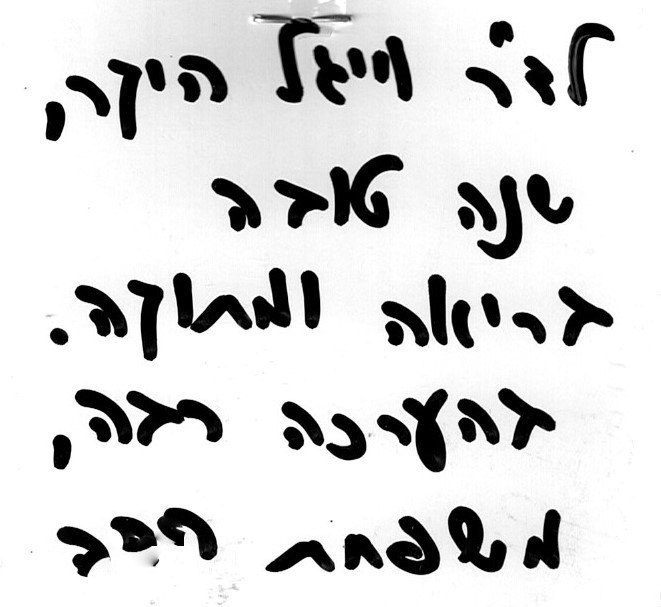 לד"ר וייגל היקר,
שנה טובה
בריאה ומתוקה.
בהערכה רבה,
משפחת